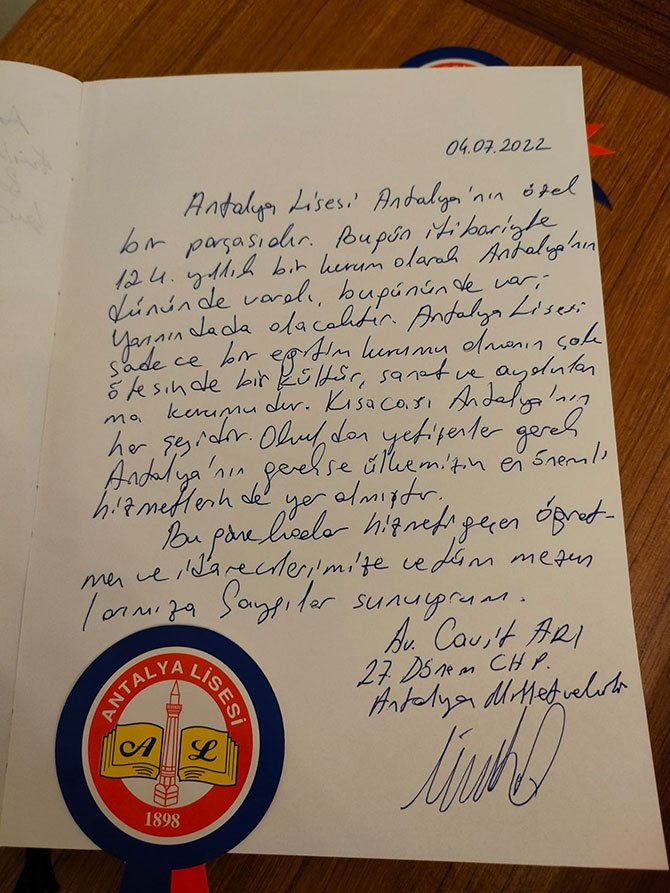 04.07.2022
Antalya Lisesi Antalya'nın özel
bir parçasıdır. Bugün itibariyle
124. yıllık bir kurum olarak Antalya'nın
dününde vardı, bugününde var,
yarınındada olacaktır. Antalya Lisesi
sadece bir eğitim kurumu olmanın çok
ötesinde bir kültür, sanat ve aydınlan
ma kurumudur. Kısacası Antalya'nın
her şeyidir. Okuldan yetişenler gerek
Antalya'nın gerekse ülkemizin en önemli
hizmetlerinde yer almıştır.
Bu güne kadar hizmeti geçen öğret-
men ve idarecilerimize ve tüm mezun
larımıza Saygılar sunuyorum.
Av. Cavit ARI
27. Dönem CHP.
Antalya Milletvekili
ANTALYA LİSESİ
A L
1898